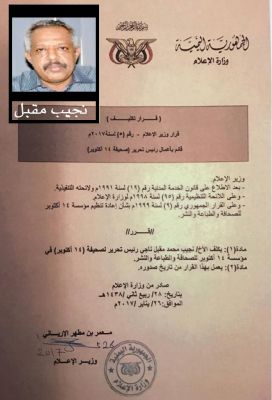 الجمهورية اليمنية
وزارة الإعلام
نجيب مقبل
( قرار تكليف )
قرار وزير الإعلام - رقم (٥) لسنة ٢٠١٧م
قائم بأعمال رئيس تحرير (صحيفة ١٤ أكتوبر)
وزير الإعلام
- بعد الاطلاع على قانون الخدمة المدنية رقم (١٩) لسنة ١٩٩١م ولائحته التنفيذية.
- وعلى اللائحة التنظيمية رقم (٩٥) لسنة ١٩٩٨م لوزارة الإعلام.
- وعلى القرار الجمهوري رقم (٩) لسنة ١٩٩٩م بشأن إعادة تنظيم مؤسسة ١٤ أكتوبر
للصحافة والطباعة والنشر.
//قرر//
مادة(١): يكلف الأخ/ نجيب محمد مقبل ناجي رئيس تحرير لصحيفة (١٤ أكتوبر) في
مؤسسة ١٤ أكتوبر للصحافة والطباعة والنشر.
مادة(٢): يعمل بهذا القرار من تاريخ صدوره.
صادر من وزارة الإعلام
بتاريخ: ٢٨/ ربيع ثاني /١٤٣٨هـ
الموافق:٢٦/ يناير /٢٠١٧م
معمر بن مطهر الإرياني
وزير الإعلام
الجمهورية اليمنية
وزارة الإعلام